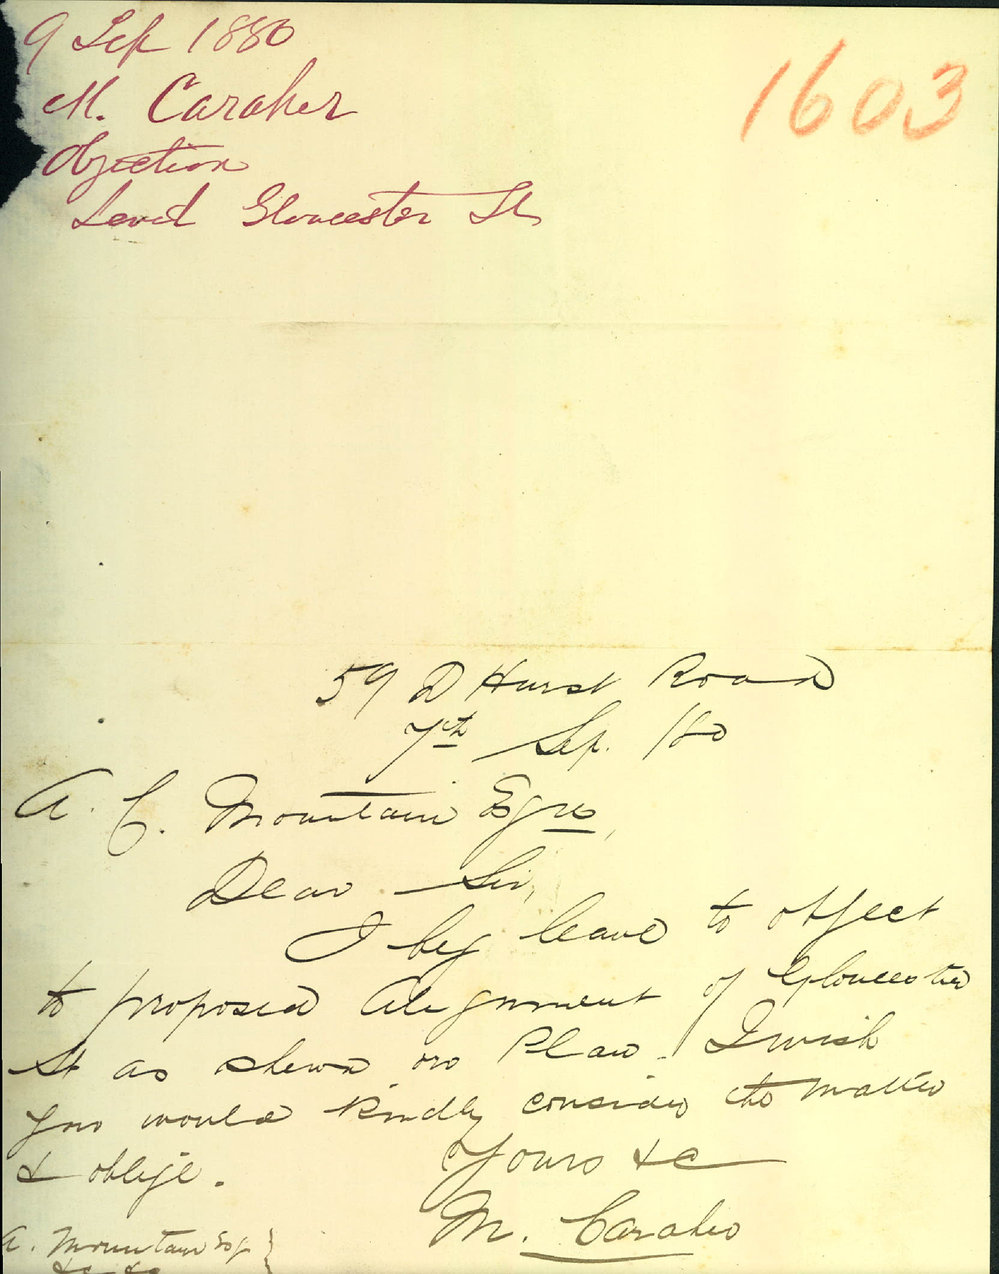 9 Sep 1880
1603
M. Caraher
Objection
Level Gloucester St
59 D Hurst Road
7th Sep. /80
A. C. Mountain Esqre,
Dear Sir,
I beg leave to object
to proposed Alignment of Gloucester
St as shewn on Plan. I wish
you would kindly consider the matter
& oblige.
Yours &c
M. Caraher
A. Mountain Esq
&c &c